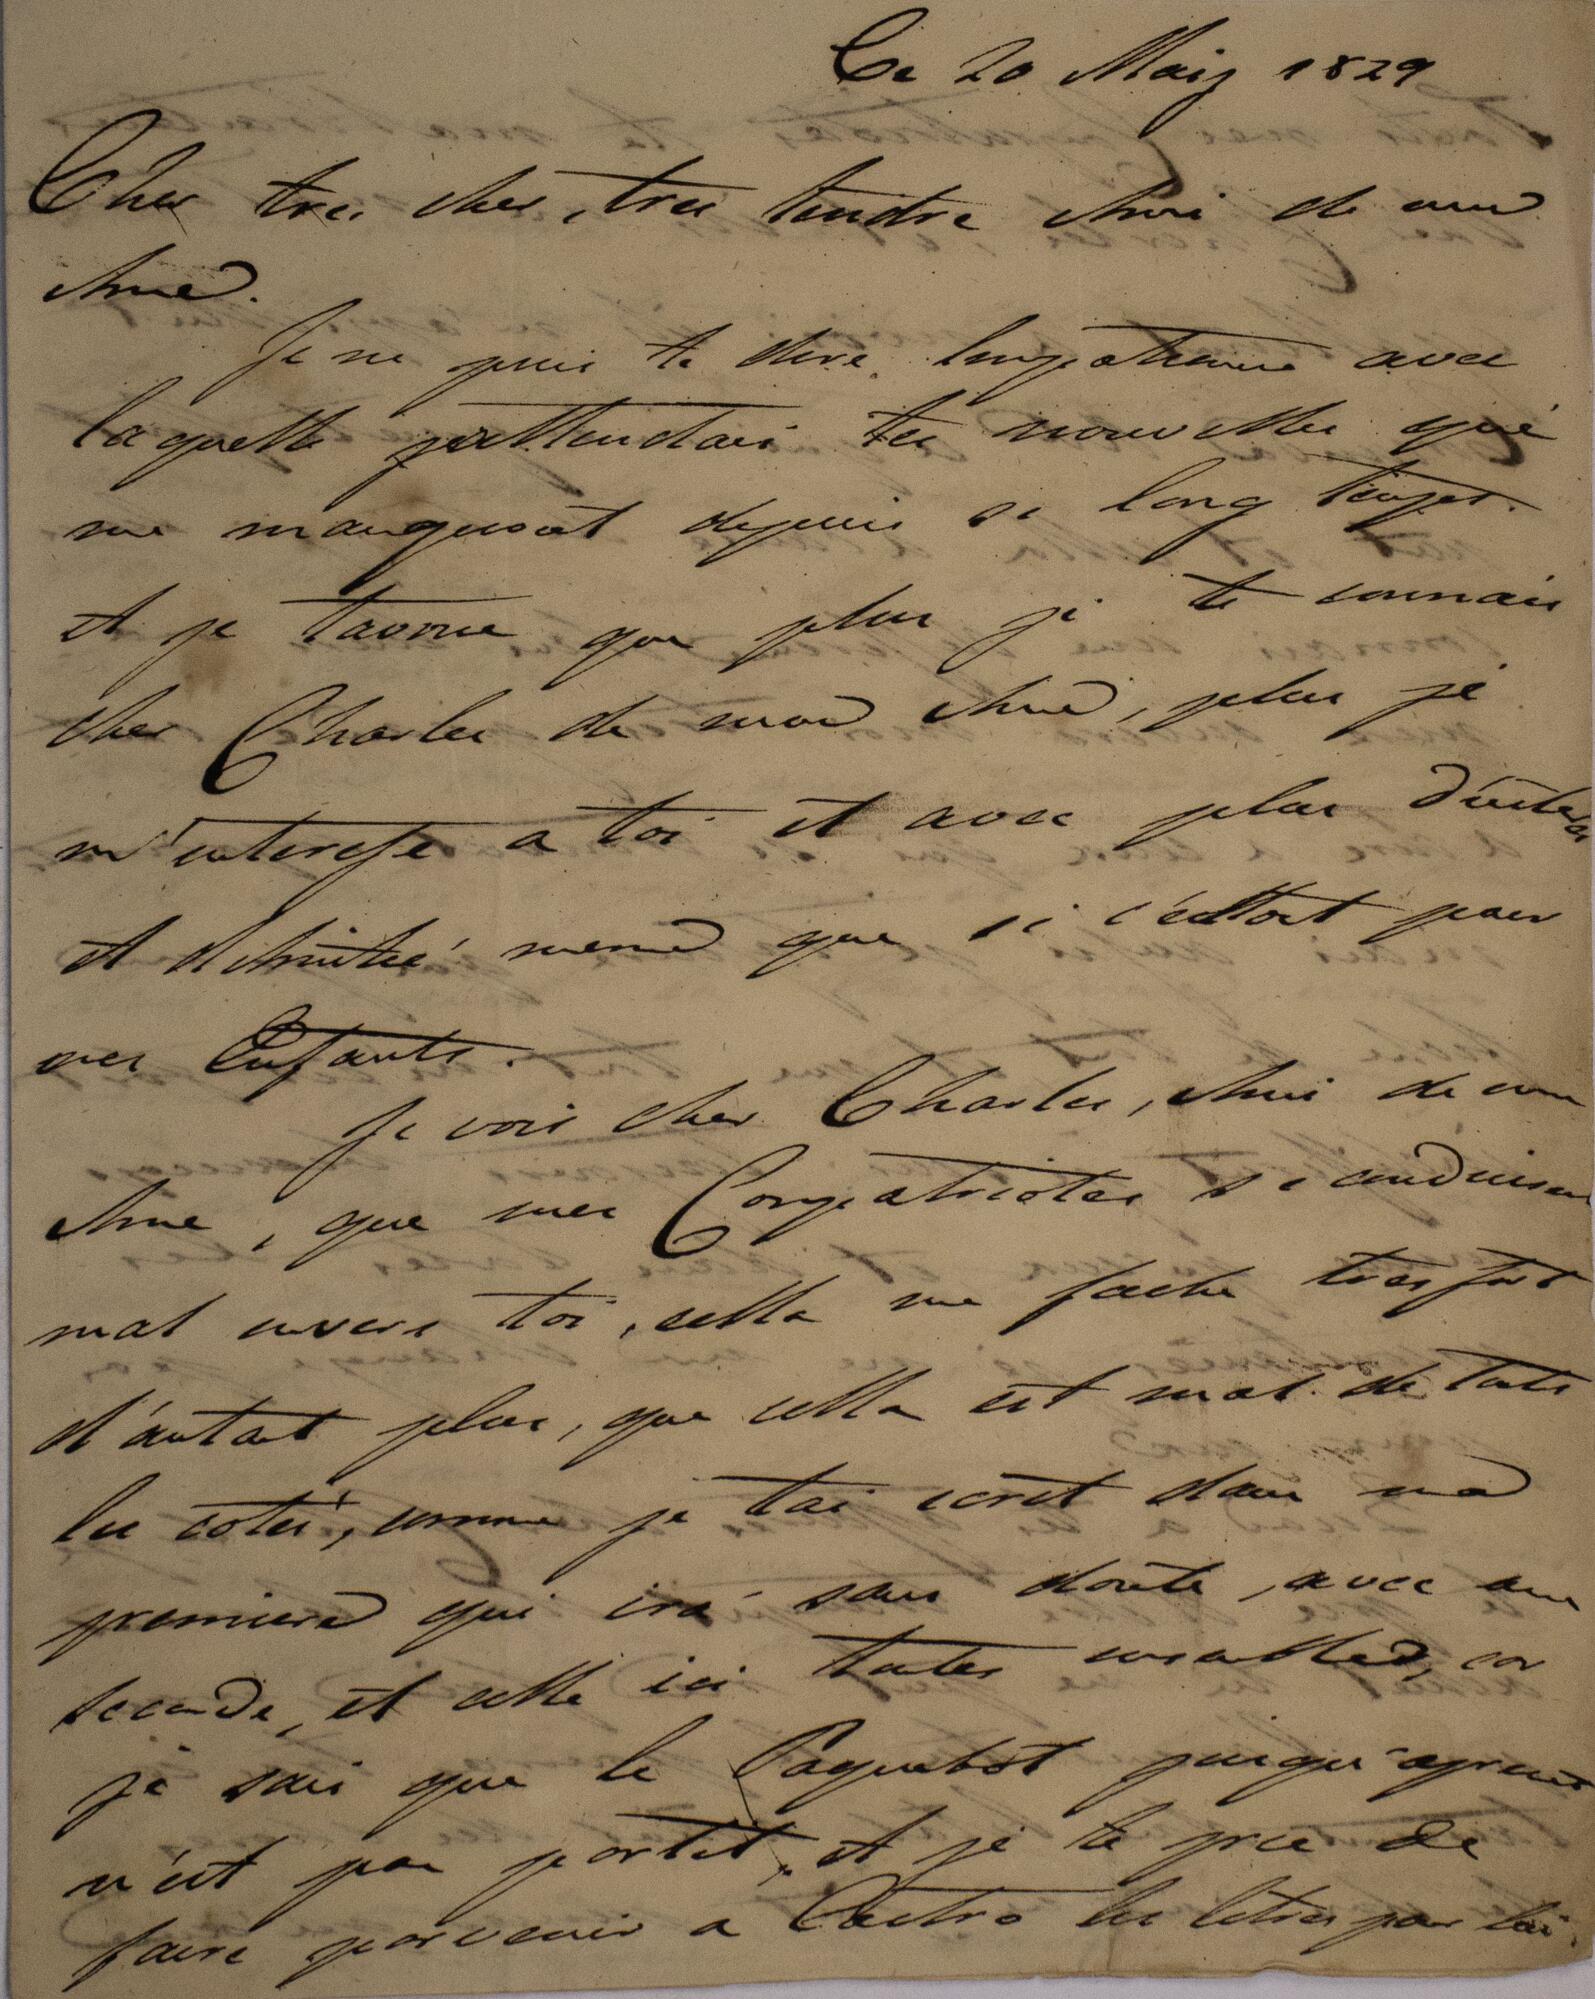 Ce 20 Maiz 1829
Cher tres cher, tres tendre Ami de mon
Ame.
Je ne puis te dire limpatience avec
laquelle j'attendais tes nouvelles qui
me manquoit depuis si long temps.
et je tavoue que plus je te connais
cher Charles de mon Ame, plus je
m'interesse a toi et avec plus d'interet
et d'Amitié meme que si c'ettoit pour
mes Enfants.
Je vois cher Charles, Ami de mon
Ame, que mes Compatriotes se conduisent
mal envers toi, cella me fache tres fort
d'autant plus, que cella est mal de touts
les cotés, comme je tai ecrit dans ma
premiere qui irá sans doute, avec une
seconde, et celle ici toutes ensemble, car
je sais que le Paquebot jusqu'apresent
n'est pas partit, et je te prie de
faire parvenir a Castro les letres pour lui.